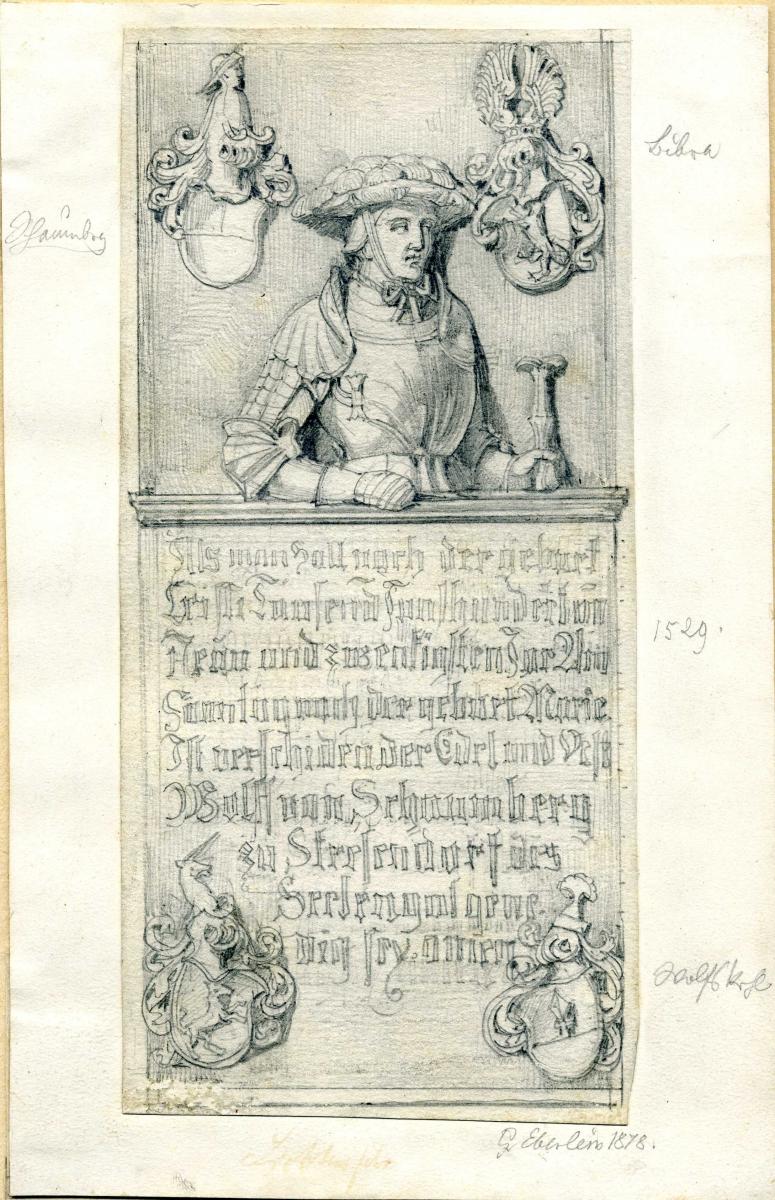 Bibra
Schaumbrg
Als man zalt nach der geburt
Cristi Tausend Funfhundert un
Neun und zwentzigsten Jar Am
Sontag nach der geburt Marie
Ist verschiden der Edel und Vest
Wolff von Schaumberg
zu Stresendorf des
Seelen got gene
dig sey. amen
1529.
G Eberlein 1878.